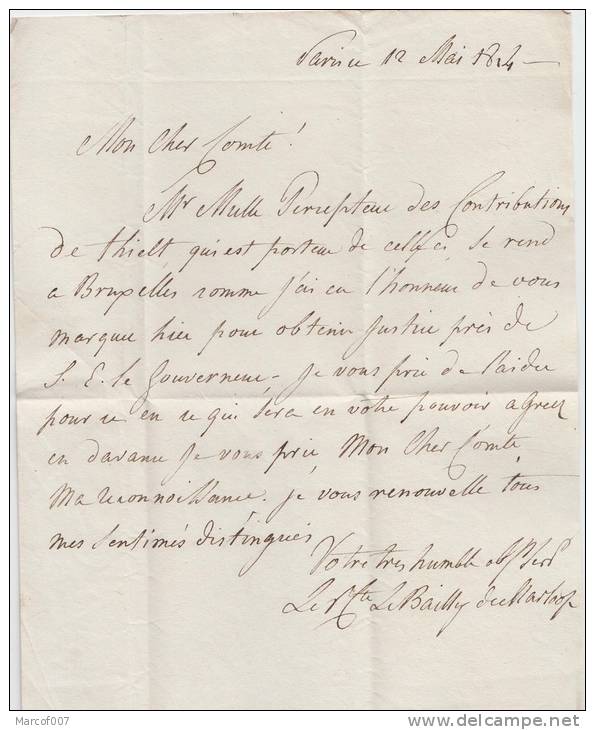 12 Mai 1814
Mon Cher Comte!
Mr Mulle Percepteur des Contributions
de thielt qui est porteur de celle ci se rend
a Bruxelles comme j'ai eu l'honneur de vous
marquer hier pour obtenir Justice près de
S. E. le Gouverneur - Je vous prie de l'aider
pour ce en ce qui sera en votre pouvoir agreez
en davance Je vous prie Mon Cher Comte
Ma reconnoissance. je vous renouvelle tous
mes sentimes distingués
Votre tres humble obt Sert
Le Vte Le Bailly de Marloop
Marcof007
delcampe.net